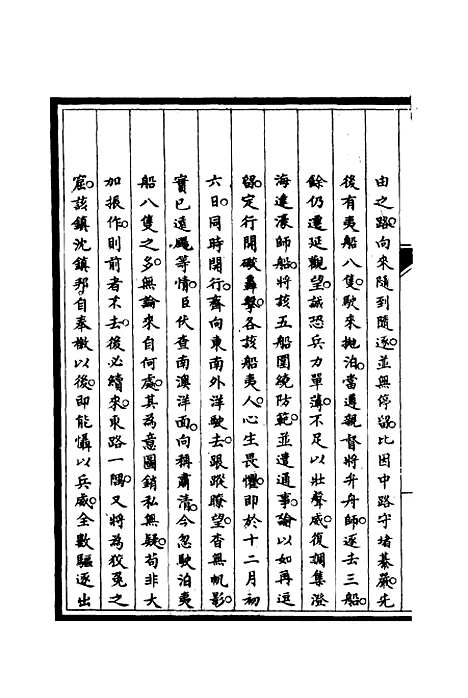 由之路。向來隨到隨逐。並無停留。比因中路守堵綦嚴。先
後有夷船八隻。駛來拋泊。當遵親督將弁舟師。逐去三船。
餘仍遷延觀望。誠恐兵力單薄。不足以壯聲威。復調集澄
海達濠師船。將該五船圍繞防範。並遣通事諭以如再逗
留。定行開礮轟擊。各該船夷人。心生畏懼。即於十二月初
六日。同時開行。齊向東南外洋駛去。跟蹤瞭望。杳無帆影。
實已遠颺等情。臣伏查南澳洋面。向稱肅清。今忽駛泊夷
船八隻之多。無論來自何處。其為意圖銷私無疑。苟非大
加振作。則前者不去。後必續來。東路一隅。又將為狡兔之
窟。該鎮沈鎮邦。自奉檄以後。即能懾以兵威。全數驅逐出